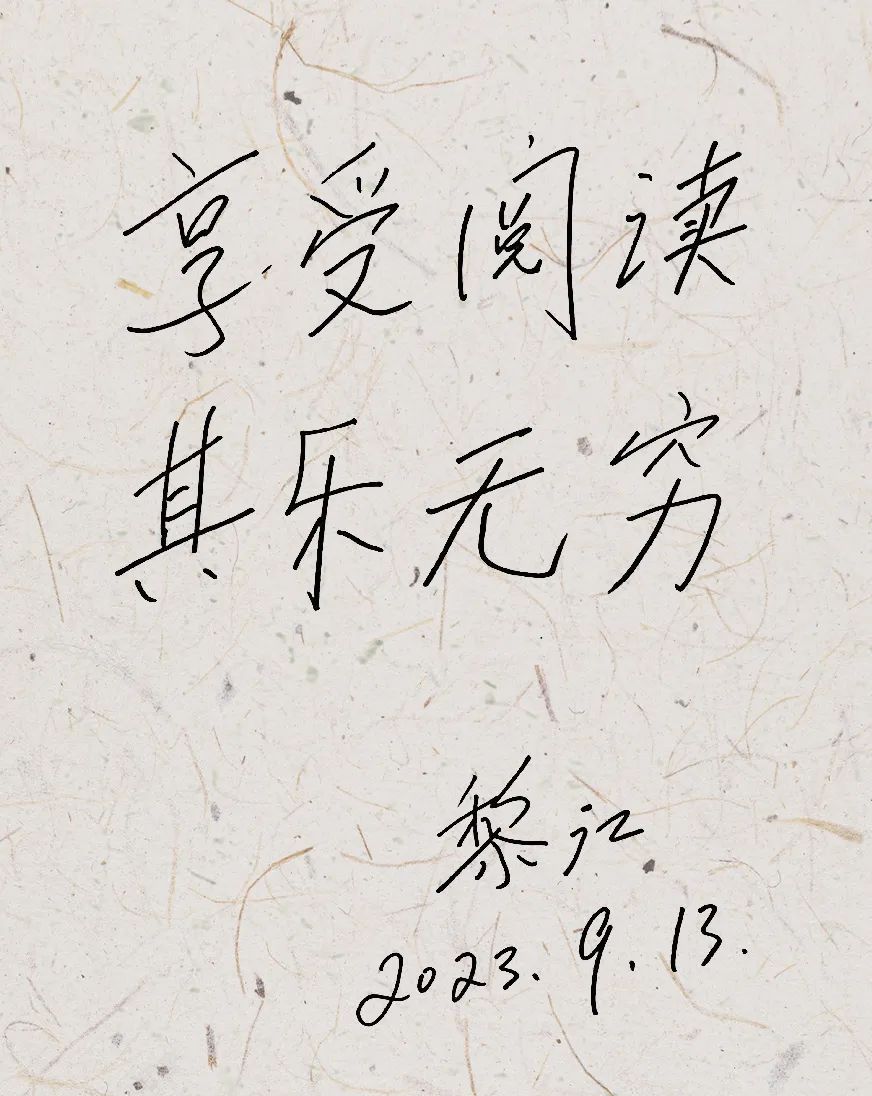 享受阅读
其乐无穷
黎江
2023.9.13.